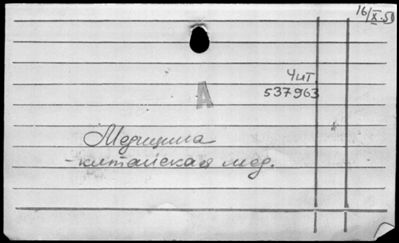 16/X.50
Чит.
537963
А
Медицина
-китайская мед.